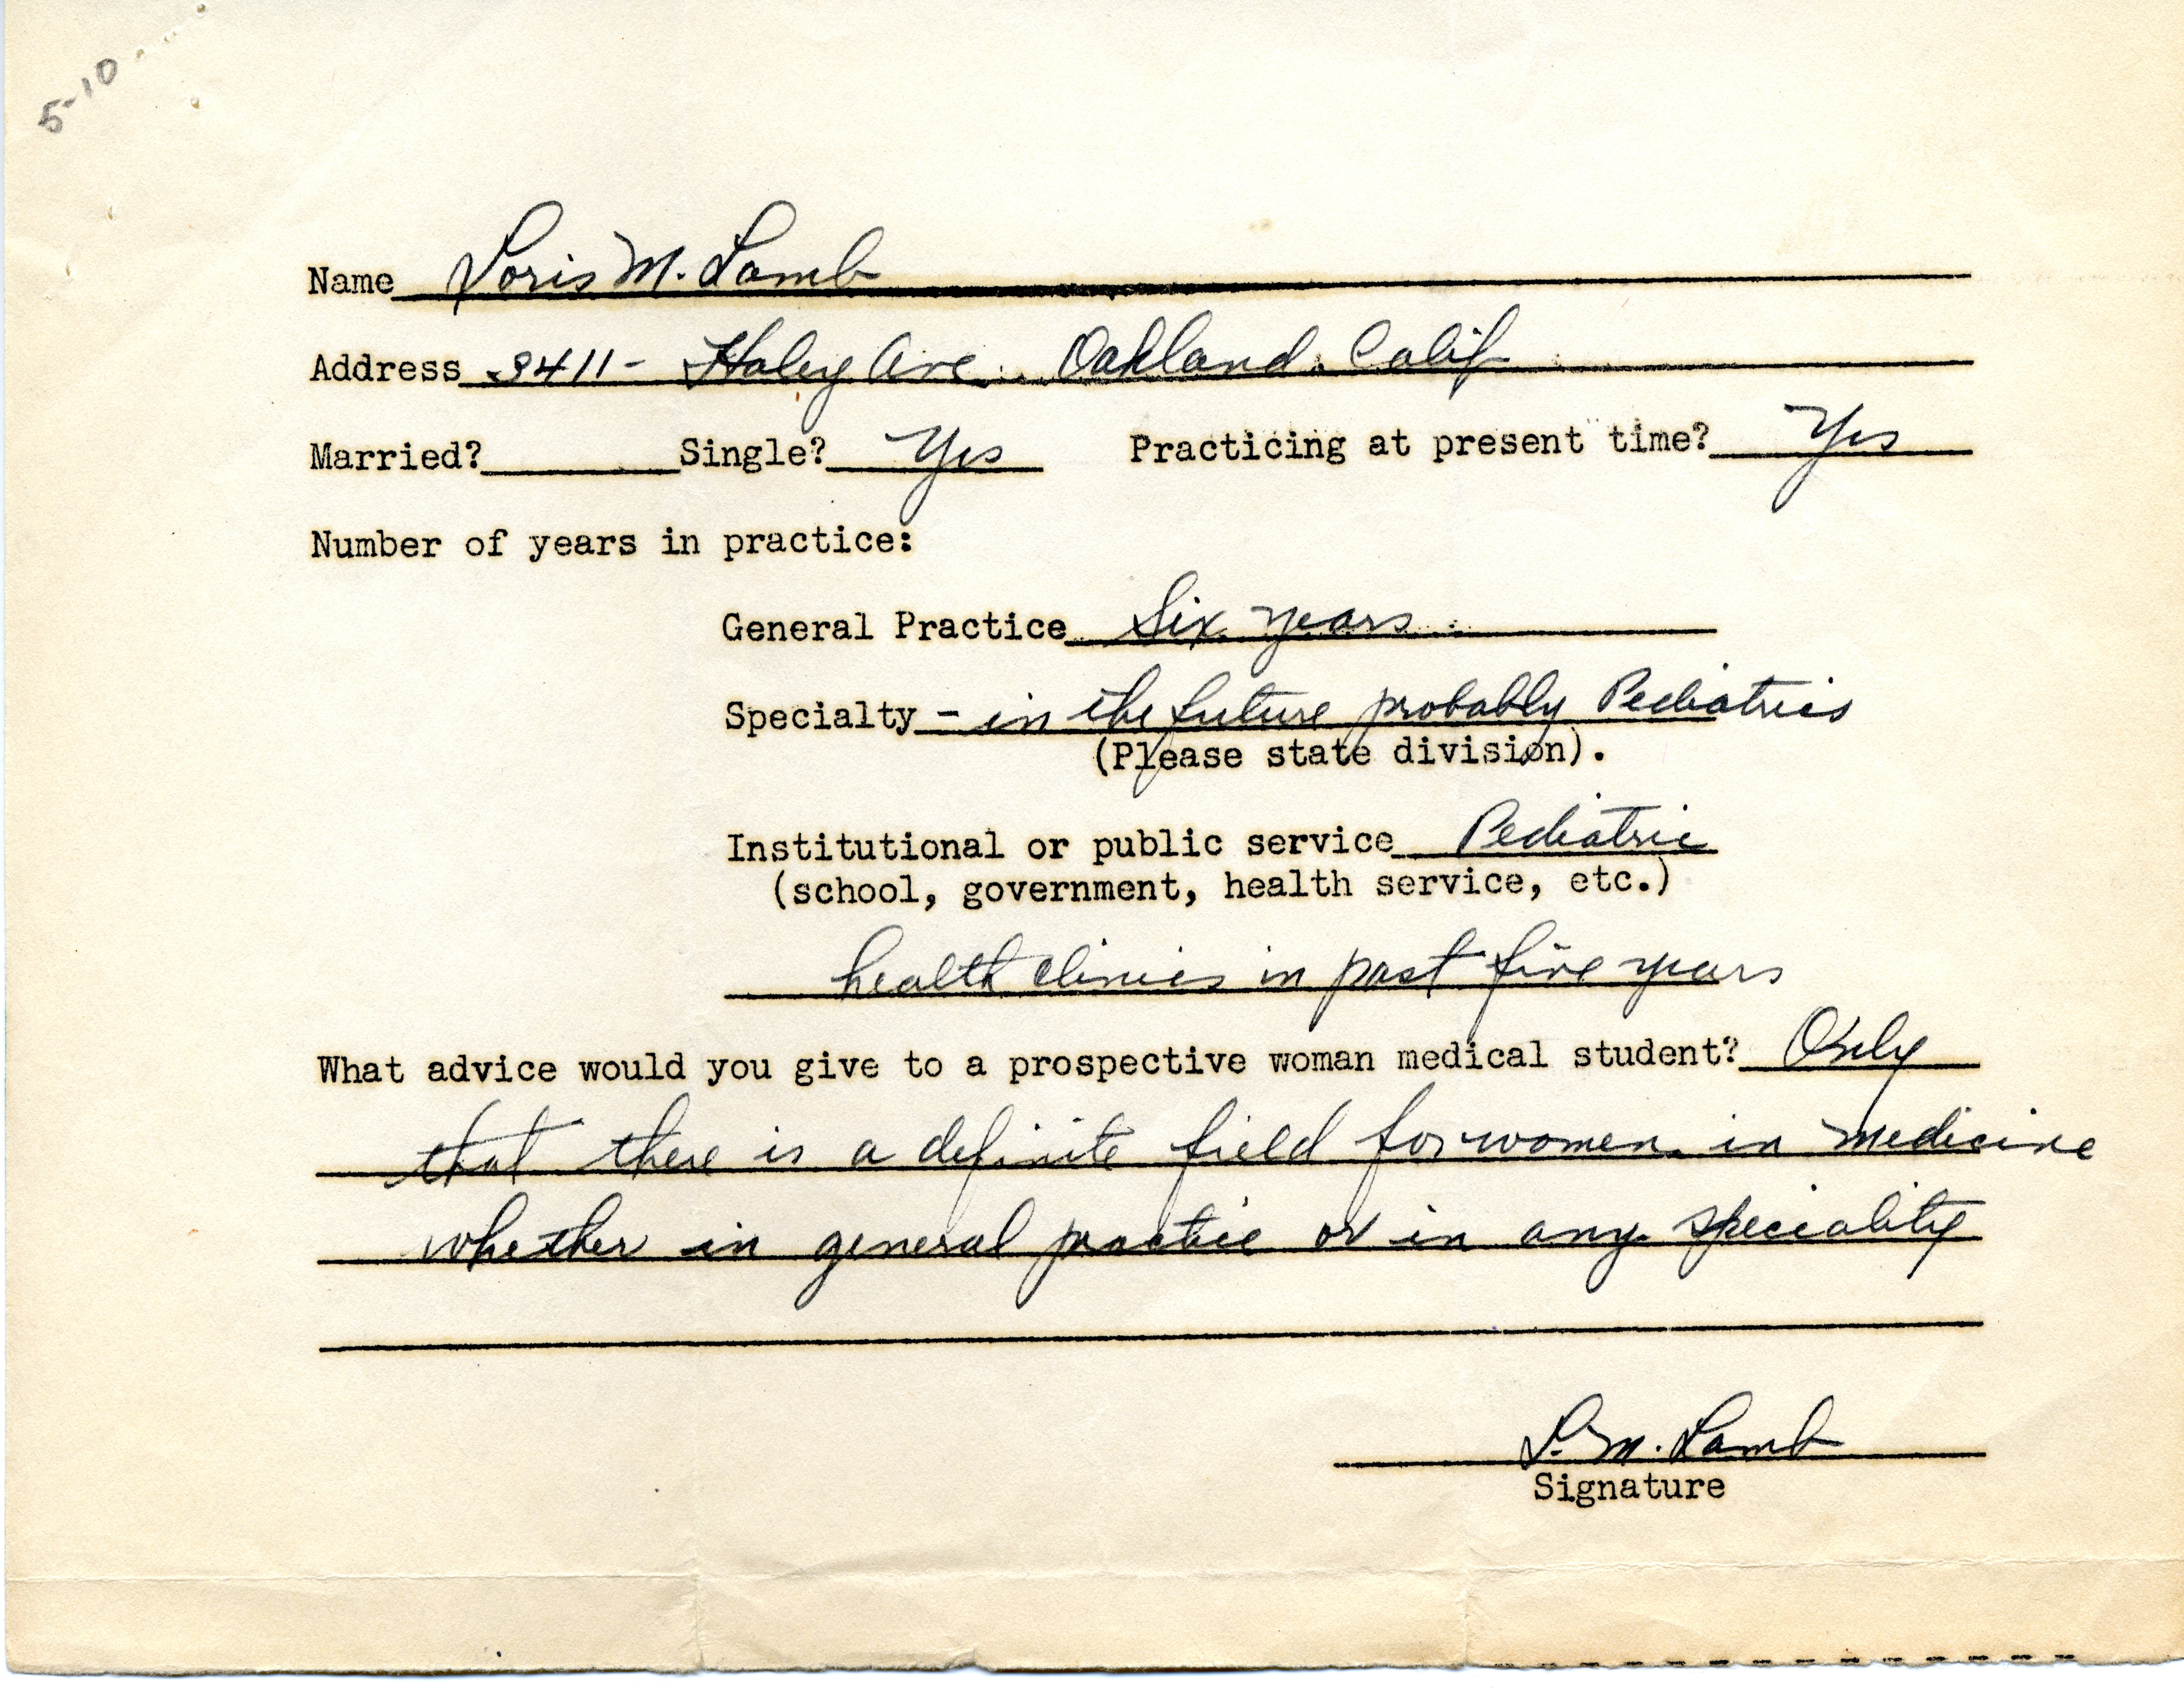 5-10
Name Loris M. Lamb
Address 3411- Haley Ave. Oakland. Calif
Married? Single? Yes Practicing at present time? Yes
Number of years in practice:
General Practice Six years
Specialty - in the future probably Pediatrics
(Please state division).
Institutional or public service Pediatric
(school, government, health service, etc.)
health clinics in past five years
What advice would you give to a prospective woman medical student? Only
that there is a definite field for women in medicine
whether in general practice or in any speciality
L. M. Lamb
Signature